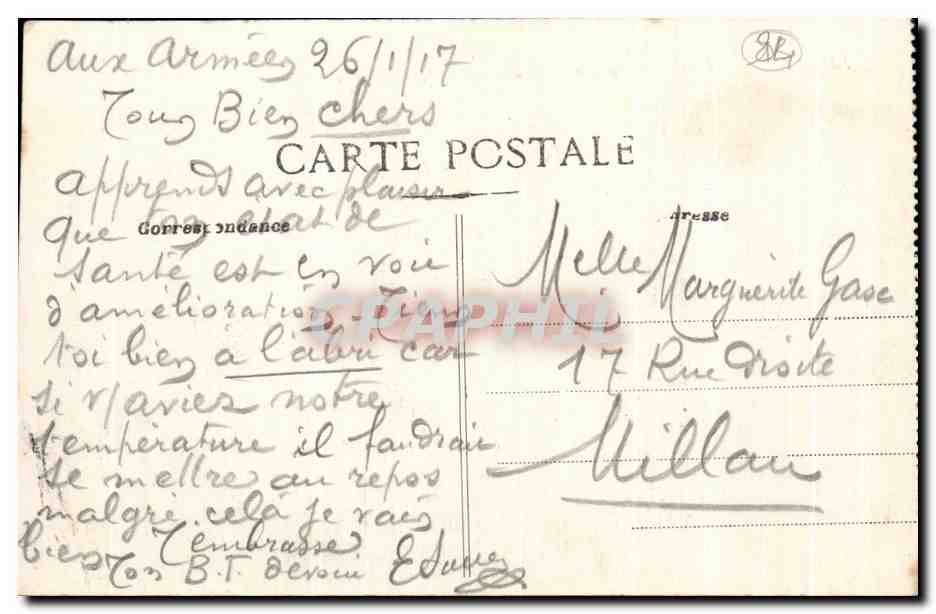 Aux Armées 26/1/17
Tous Bien chers
CARTE POSTALE
Correspondance
apprends avec plaisir
que ton état de
santé est en voie
d'amélioration. Tiens
toi bien à l'abri car
si v/aviez notre
température il faudrait
se mettre au repos
malgré celà je vais
bien T'embrasse
Ton B.F. dévoué E
Adresse
Melle Marguerite Gasc
17 Rue Droite
Millau
CPAPHIL